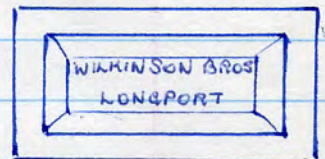 WILKINSON BROS
LONGPORT